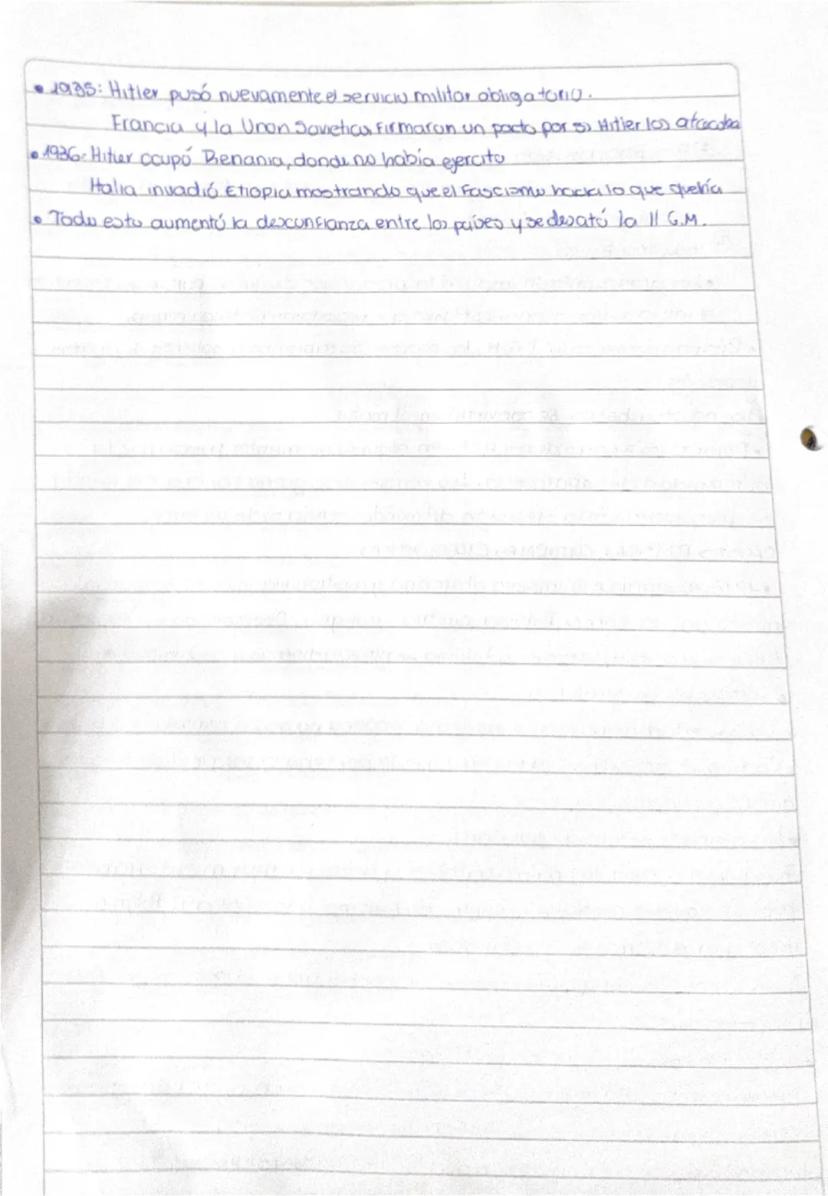 • 1935: Hitler pusó nuevamente el servicio militar obligatorio.
Francia y la Unon Sovietica firmaron un pacto por si Hitler los atacaba
• 1936: Hitler ocupó Renania, donde no había ejercito
Italia invadió Etiopia mostrando que el Fascismo hacia lo que quería
• Todo esto aumentó la desconfianza entre los países y se desató la II G.M.